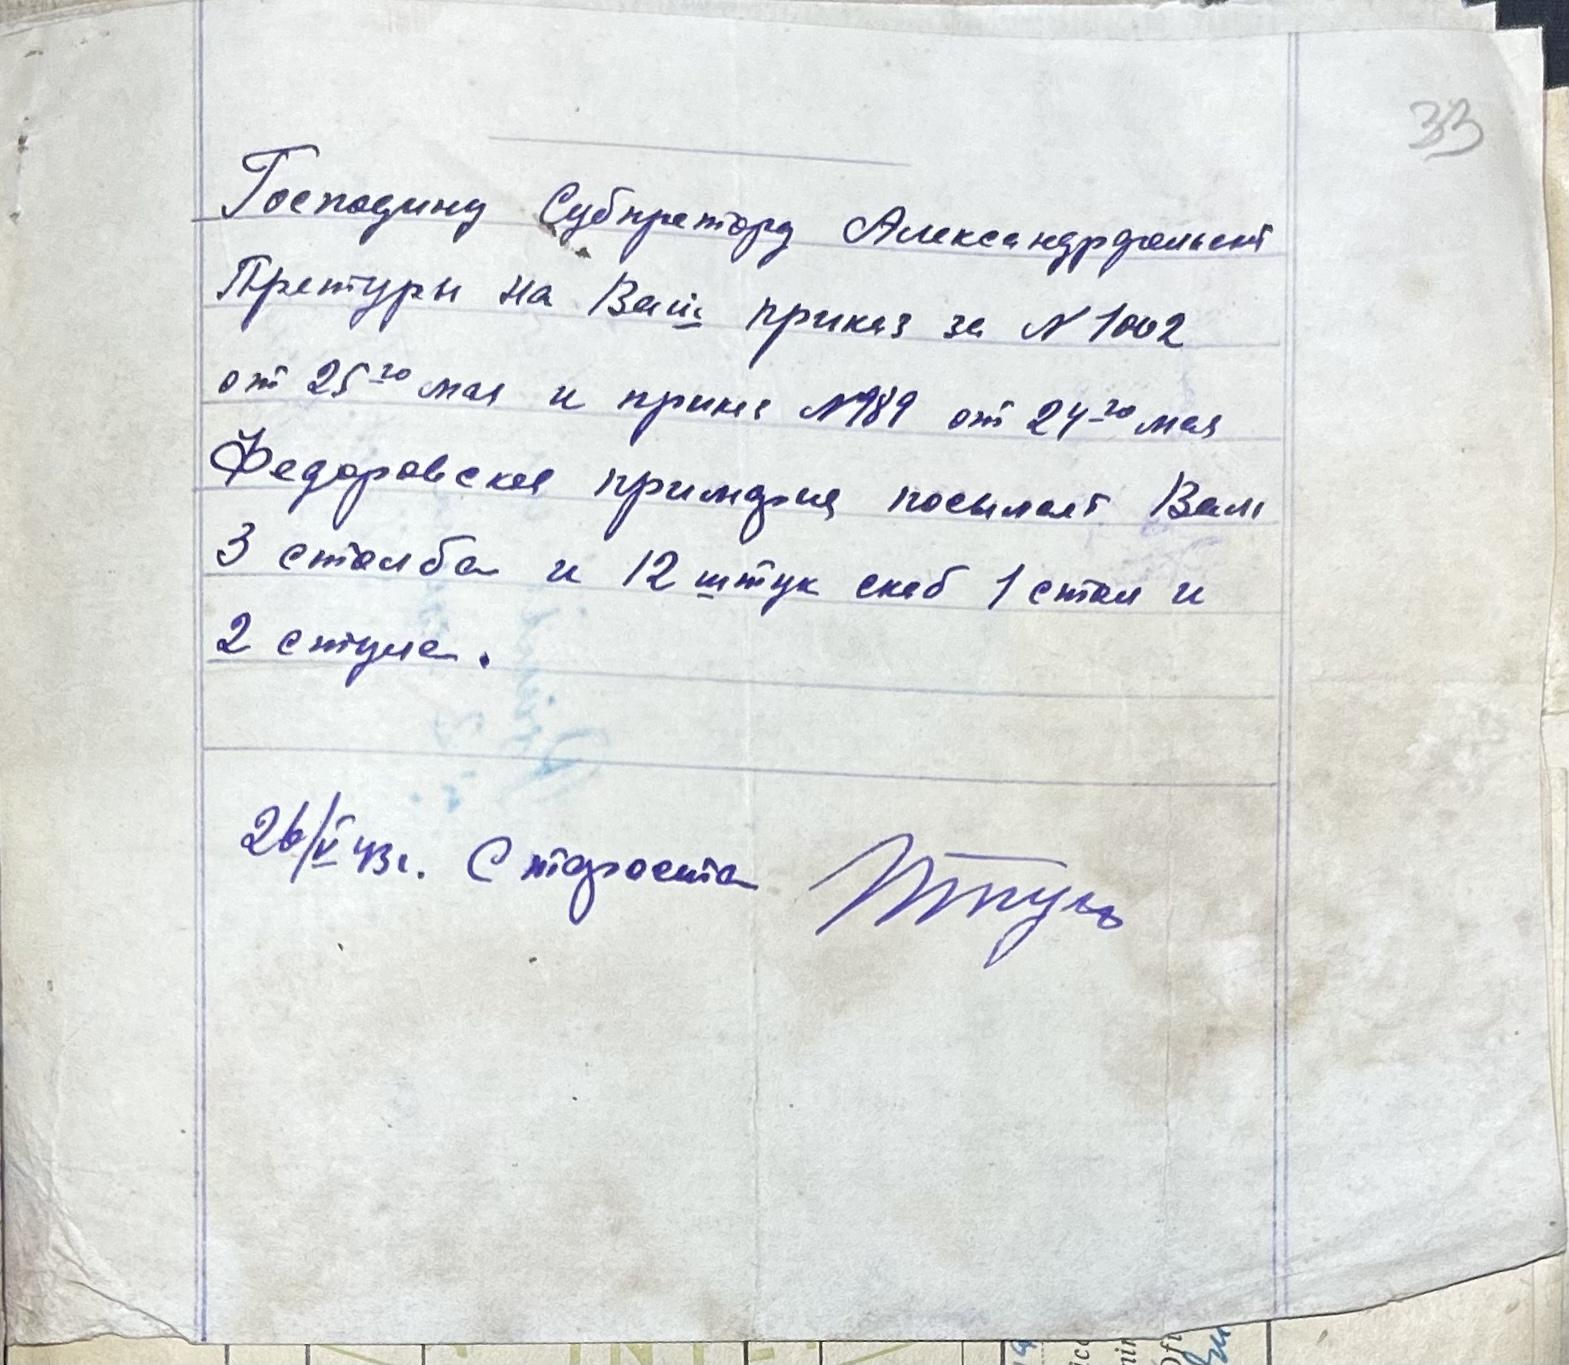 33
Господину Субпретору Александрфельст
Претуры на Ваш приказ за N 1002
от 25го мая и приказ N989 от 24го мая
Федоровская примария посылает Вам
3 столба и 12 штук скоб 1 стол и
2 стула.
26/V 43г. Староста